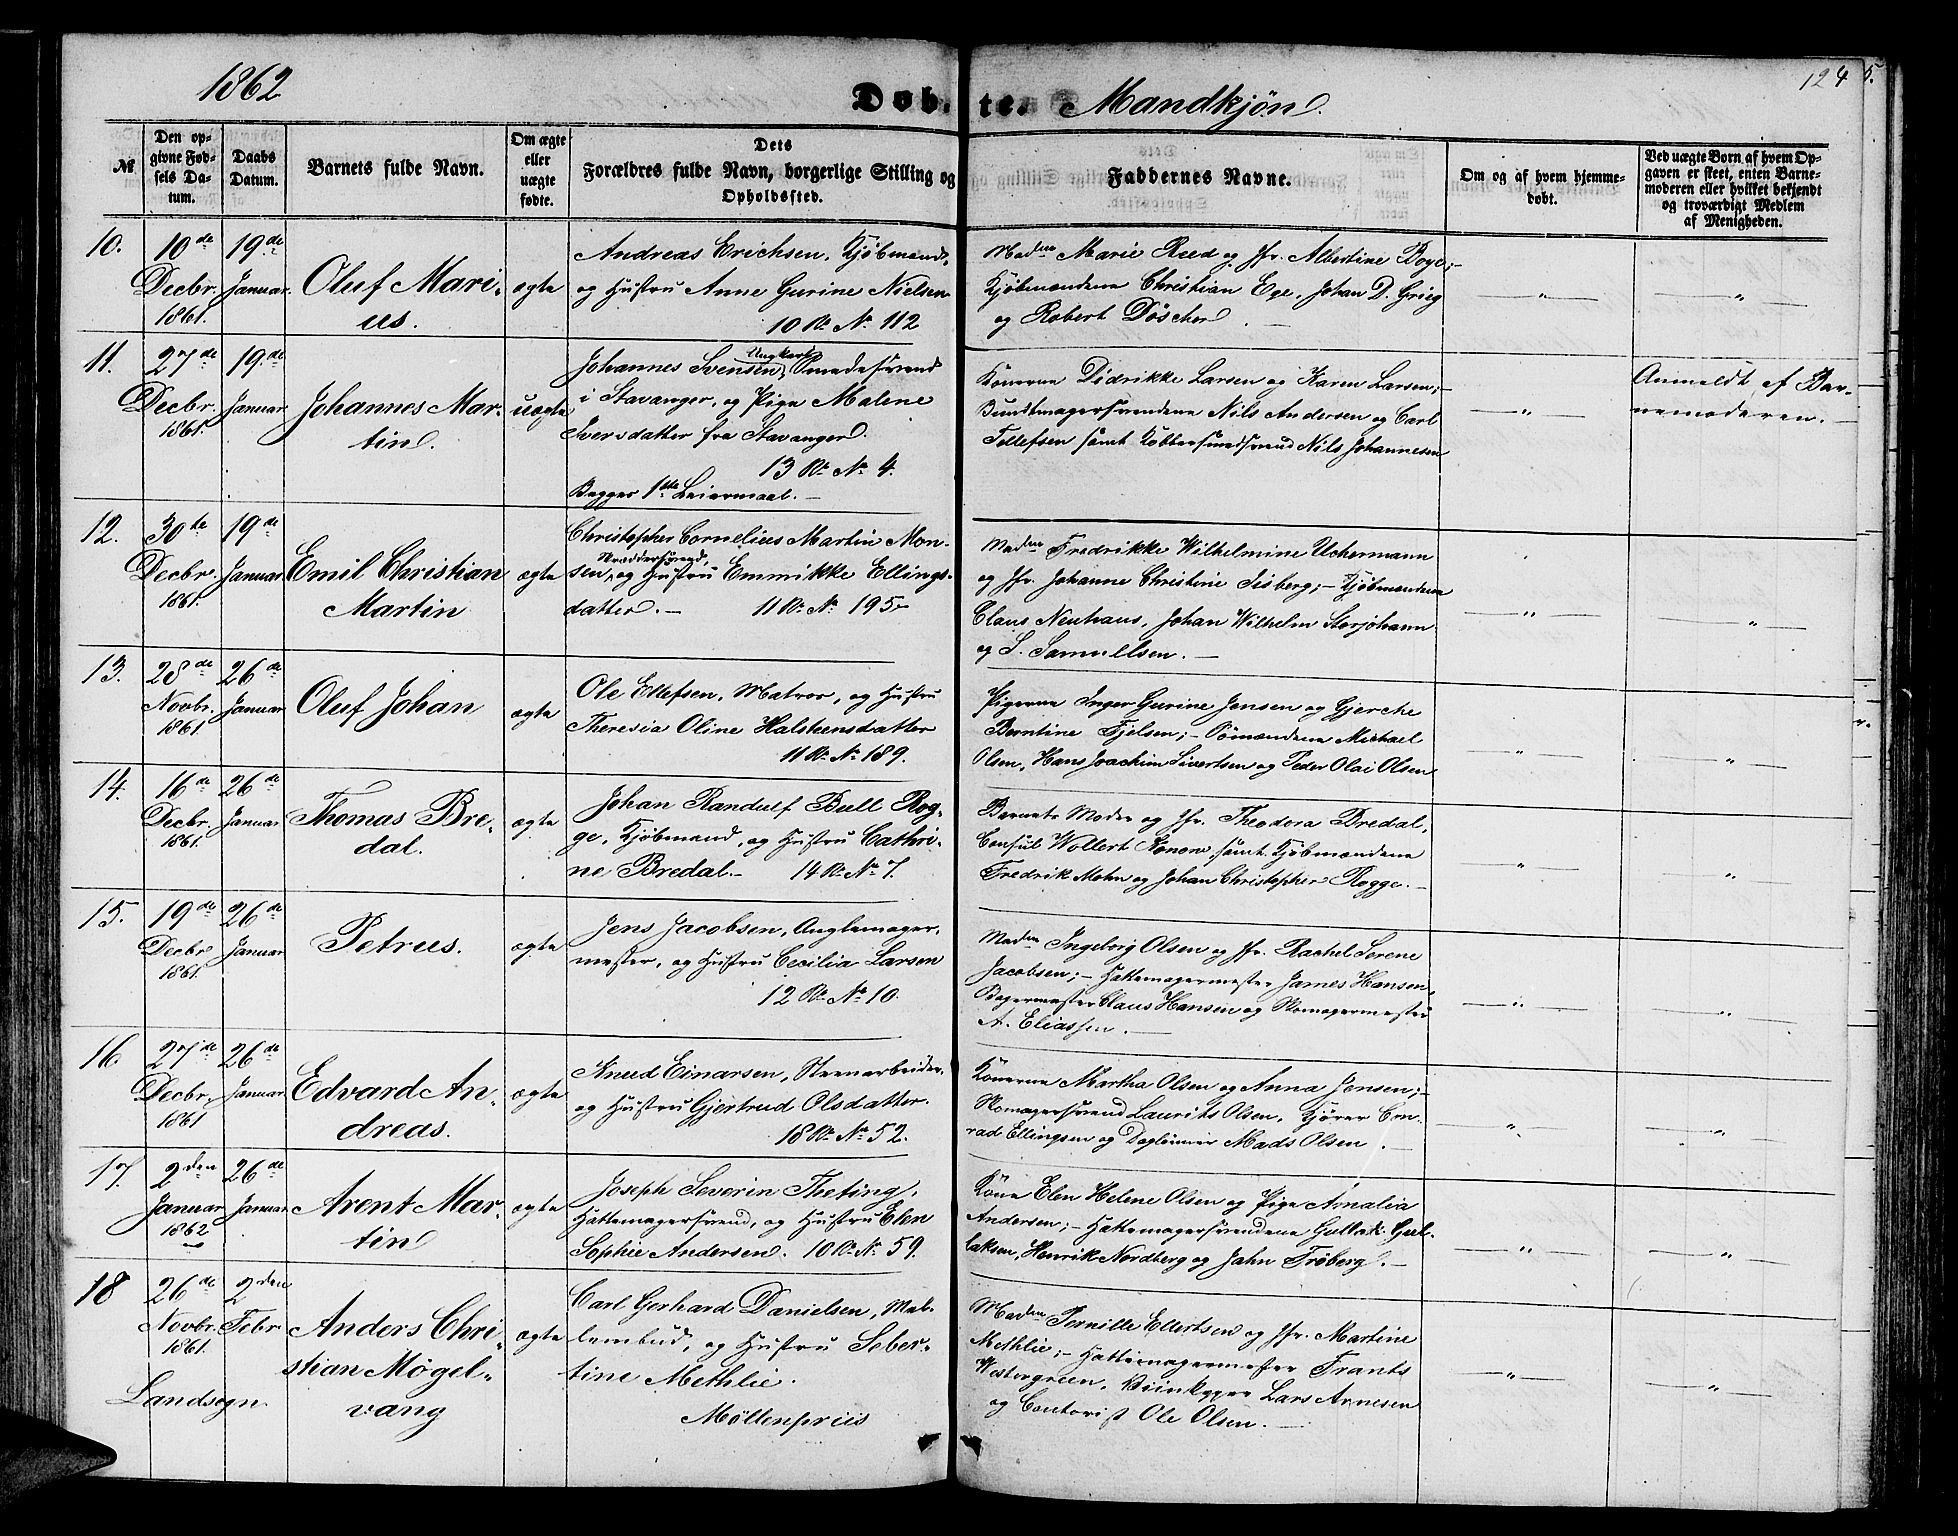 1862
Døbte. Mandkjøn.
124
5.
№
Den opgivne Fødsels Datum.
Daabs Datum.
Barnets fulde Navn.
Om ægte eller uægte fødte.
Dets Forældres fulde Navn, borgerlige Stilling og Opholdssted.
Faddernes Navne.
Om og af hvem hjemmedøbt.
Ved uægte Børn af hvem Opgaven er skeet, enten Barnemoderen eller hvilket bekjendt og troværdigt Medlem af Menigheden.
10.
10de Decbr. 1861.
19de Januar.
Oluf Marius.
ægte
Andreas Erichsen, Kjøbmand,
og Hustru Anne Gurine Nielsen
10 R. No 112
Madm Marie Reed og Jfr. Albertine Boge;
Kjøbmændene Christian Ege, Johan D. Grieg
og Robert Döscher.
11.
27de Decbr. 1861.
19de Januar
Johannes Martin
uægte
Johannes Svensen, Ungkarl, Smedesvend
i Stavanger, og Pige Malene
Iversdatter fra Stavanger.
13 R. No 4.
Begges 1ste Leiermaal.
Konerne Didrikke Larsen og Karen Larsen;
Bundtmagersvendene Nils Andersen og Carl
Tollefsen samt Kobbersmedsvend Nils Johannesen
Anmeldt af Barnemoderen.
12.
30te Decbr. 1861.
19de Januar
Emil Christian Martin
ægte
Christopher Cornelius Martin Monsen,
Skræddersvend, og Hustru Emmikke Ellingsdatter.
11 R. No 195
Madm Fredrikke Wilhelmine Uchermann
og Jfr. Johanne Christine Isberg; Kjøbmændene
Claus Neuhaus, Johan Wilhelm Storjohann
og S. Samuelsen.
13.
28de Novbr. 1861
26de Januar
Oluf Johan
ægte
Ole Ellefsen, Matros, og Hustru
Theresia Oline Halsteensdatter
11 R. No 189.
Pigerne Inger Gurine Jensen og Gjerche
Berntine Fjelsen; Sømændene Michael
Olsen, Hans Joachim Sivertsen og Peder Olai Olsen
14.
16de Decbr. 1861.
26de Januar
Thomas Bredal.
ægte
Johan Randulf Bull Rogge,
Kjøbmand, og Hustru Cathrine
Bredal. 14 R. No 7.
Barnets Moder og Jfr. Theodora Bredal,
Consul Wollert Konow, samt Kjøbmændene
Fredrik Mohn og Johan Christopher Rogge.
15.
19de Decbr 1861.
26de Januar
Petrus.
ægte
Jens Jacobsen, Anglemagermester,
og Hustru Cecilia Larsen
12 R. No 10.
Madm Ingeborg Olsen og Jfr. Rachel Serene
Jacobsen; Hattemagermester James Hansen,
Bagermester Claus Hansen og Skomagermester
A. Eliassen.
16.
27de Decbr. 1861
26de Januar
Edvard Andreas.
ægte
Knud Einarsen, Steenarbeider,
og Hustru Gjertrud Olsdatter.
18 R. No 52.
Konerne Martha Olsen og Anna Jensen;
Skomagersvend Laurits Olsen, Kjører Conrad
Ellingsen og Dagleier Mads Olsen.
17.
2den Januar 1862
26de Januar
Arent Martin
ægte
Joseph Severin Theting,
Hattemagersvend, og Hustru Elen
Sophie Andersen. 10 R. No 59.
Kone Elen Helene Olsen og Pige Amalia
Andersen; Hattemagersvendene Gullak Gullaksen,
Henrik Nordberg og Jahn Fröberg.
18
26de Novbr. 1861.
2den Febr.
Landsogn.
Anders Christian Møgelvang
ægte
Carl Gerhard Danielsen, Mæklembud,
og Hustru Sebertine
Methlie.
Möllenpriis
Madm Pernille Ellertsen og Jfr. Martine
Methlie; Hattemagermester Frants
Westergreen, Viinkyper Lars Arnesen
og Contorist Ole Olsen.